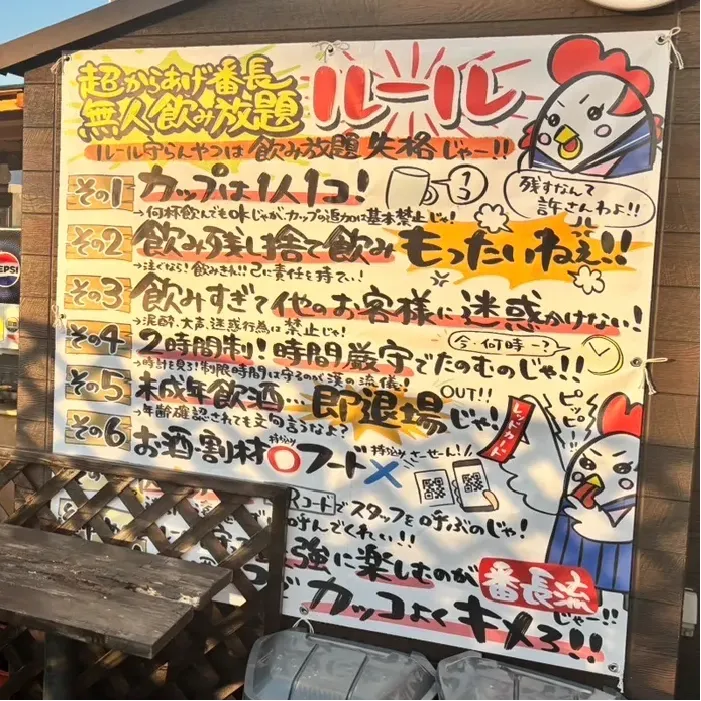 超からあげ番長
無人飲み放題
ルール
ルール守らんやつは飲み放題失格じゃー!!
残すなんて
許さんわよ!!
その1 カップは1人1コ!
1コ
→何杯飲んでもOKじゃが、カップの追加は基本禁止じゃ!
その2 飲み残し捨て飲みもったいねぇ!!
→注ぐなら!飲みきれ!!己に責任を持てい!
その3 飲みすぎて他のお客様に迷惑かけない!
→泥酔、大声、迷惑行為は禁止じゃ!
今、何時ー?
その4 2時間制!時間厳守でたのむのじゃ!!
→時計を見ろ!制限時間は守るのが漢の流儀!
その5 未成年飲酒…即退場じゃ!
OUT!!
→年齢確認されても文句言うなよ?
レッドカード
ピッピー!
その6 お酒・割材持込み○フード持込み×
さーせん!
Rコードでスタッフを呼ぶのじゃ!
呼んでくれい!!
強に楽しむのが番長流
じゃー!!
カッコよくキメろ!!
PEPSI